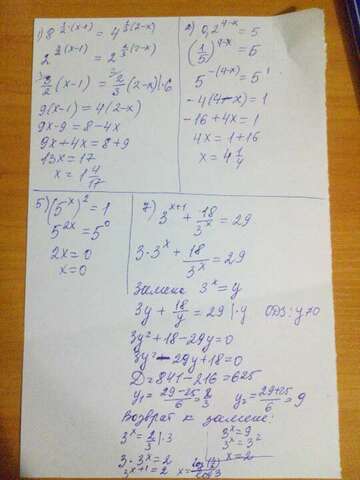 1) 8^{\frac{1}{2}(x-1)} = 4^{\frac{1}{3}(2-x)}
2^{\frac{3}{2}(x-1)} = 2^{\frac{2}{3}(2-x)}
\frac{3}{2}(x-1) = \frac{2}{3}(2-x) |·6
9(x-1) = 4(2-x)
9x-9 = 8-4x
9x+4x = 8+9
13x = 17
x = 1\frac{4}{17}
2) 0,2^{4-x} = 5
(\frac{1}{5})^{4-x} = 5
5^{-(4-x)} = 5^1
-4(4-x) = 1
-16+4x = 1
4x = 1+16
x = 4\frac{1}{4}
5) (5^x)^2 = 1
5^{2x} = 5^0
2x = 0
x = 0
7) 3^{x+1} + \frac{18}{3^x} = 29
3·3^x + \frac{18}{3^x} = 29
Замена 3^x = y
3y + \frac{18}{y} = 29 |·y ОДЗ: y≠0
3y²+18-29y=0
3y²-29y+18=0
D=841-216=625
y₁ = \frac{29-25}{6} = \frac{2}{3} y₂ = \frac{29+25}{6} = 9
Возврат к замене:
3^x = \frac{2}{3} |·3
3·3^x = 2
3^{x+1} = 2
3^x = 9
3^x = 3²
x = 2